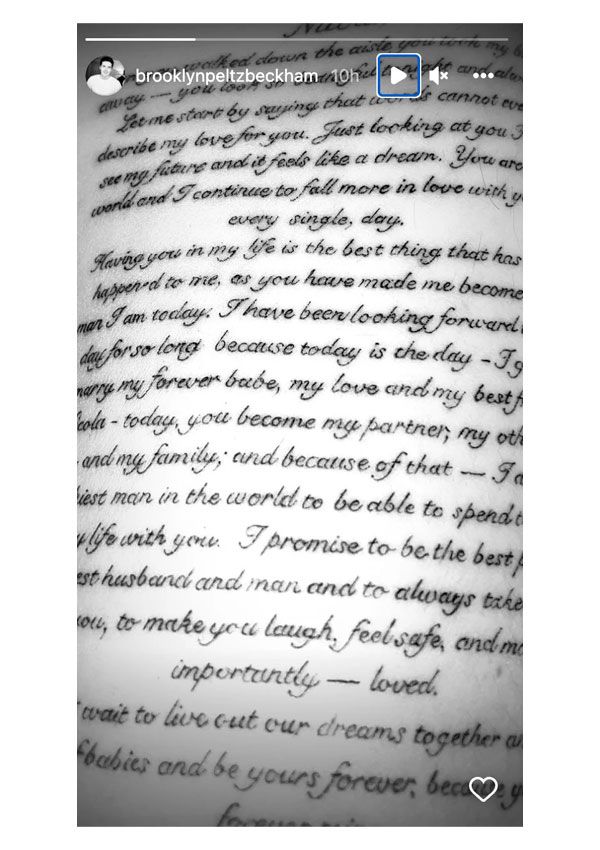 brooklynpeltzbeckham 10h
walked down the aisle you took my
away — you look so
Let me start by saying that words cannot
describe my love for you. Just looking at you I
see my future and it feels like a dream. You are
world and I continue to fall more in love with
every single, day.
Having you in my life is the best thing that has
happened to me, as you have made me become
man I am today. I have been looking forward
day for so long because today is the day – I
marry my forever babe, my love and my best
- today, you become my partner, my
and my family; and because of that — I
man in the world to be able to spend
life with you. I promise to be the best
husband and man and to always take
you, to make you laugh, feel safe, and
importantly — loved.
wait to live out our dreams together
babies and be yours forever,
forever